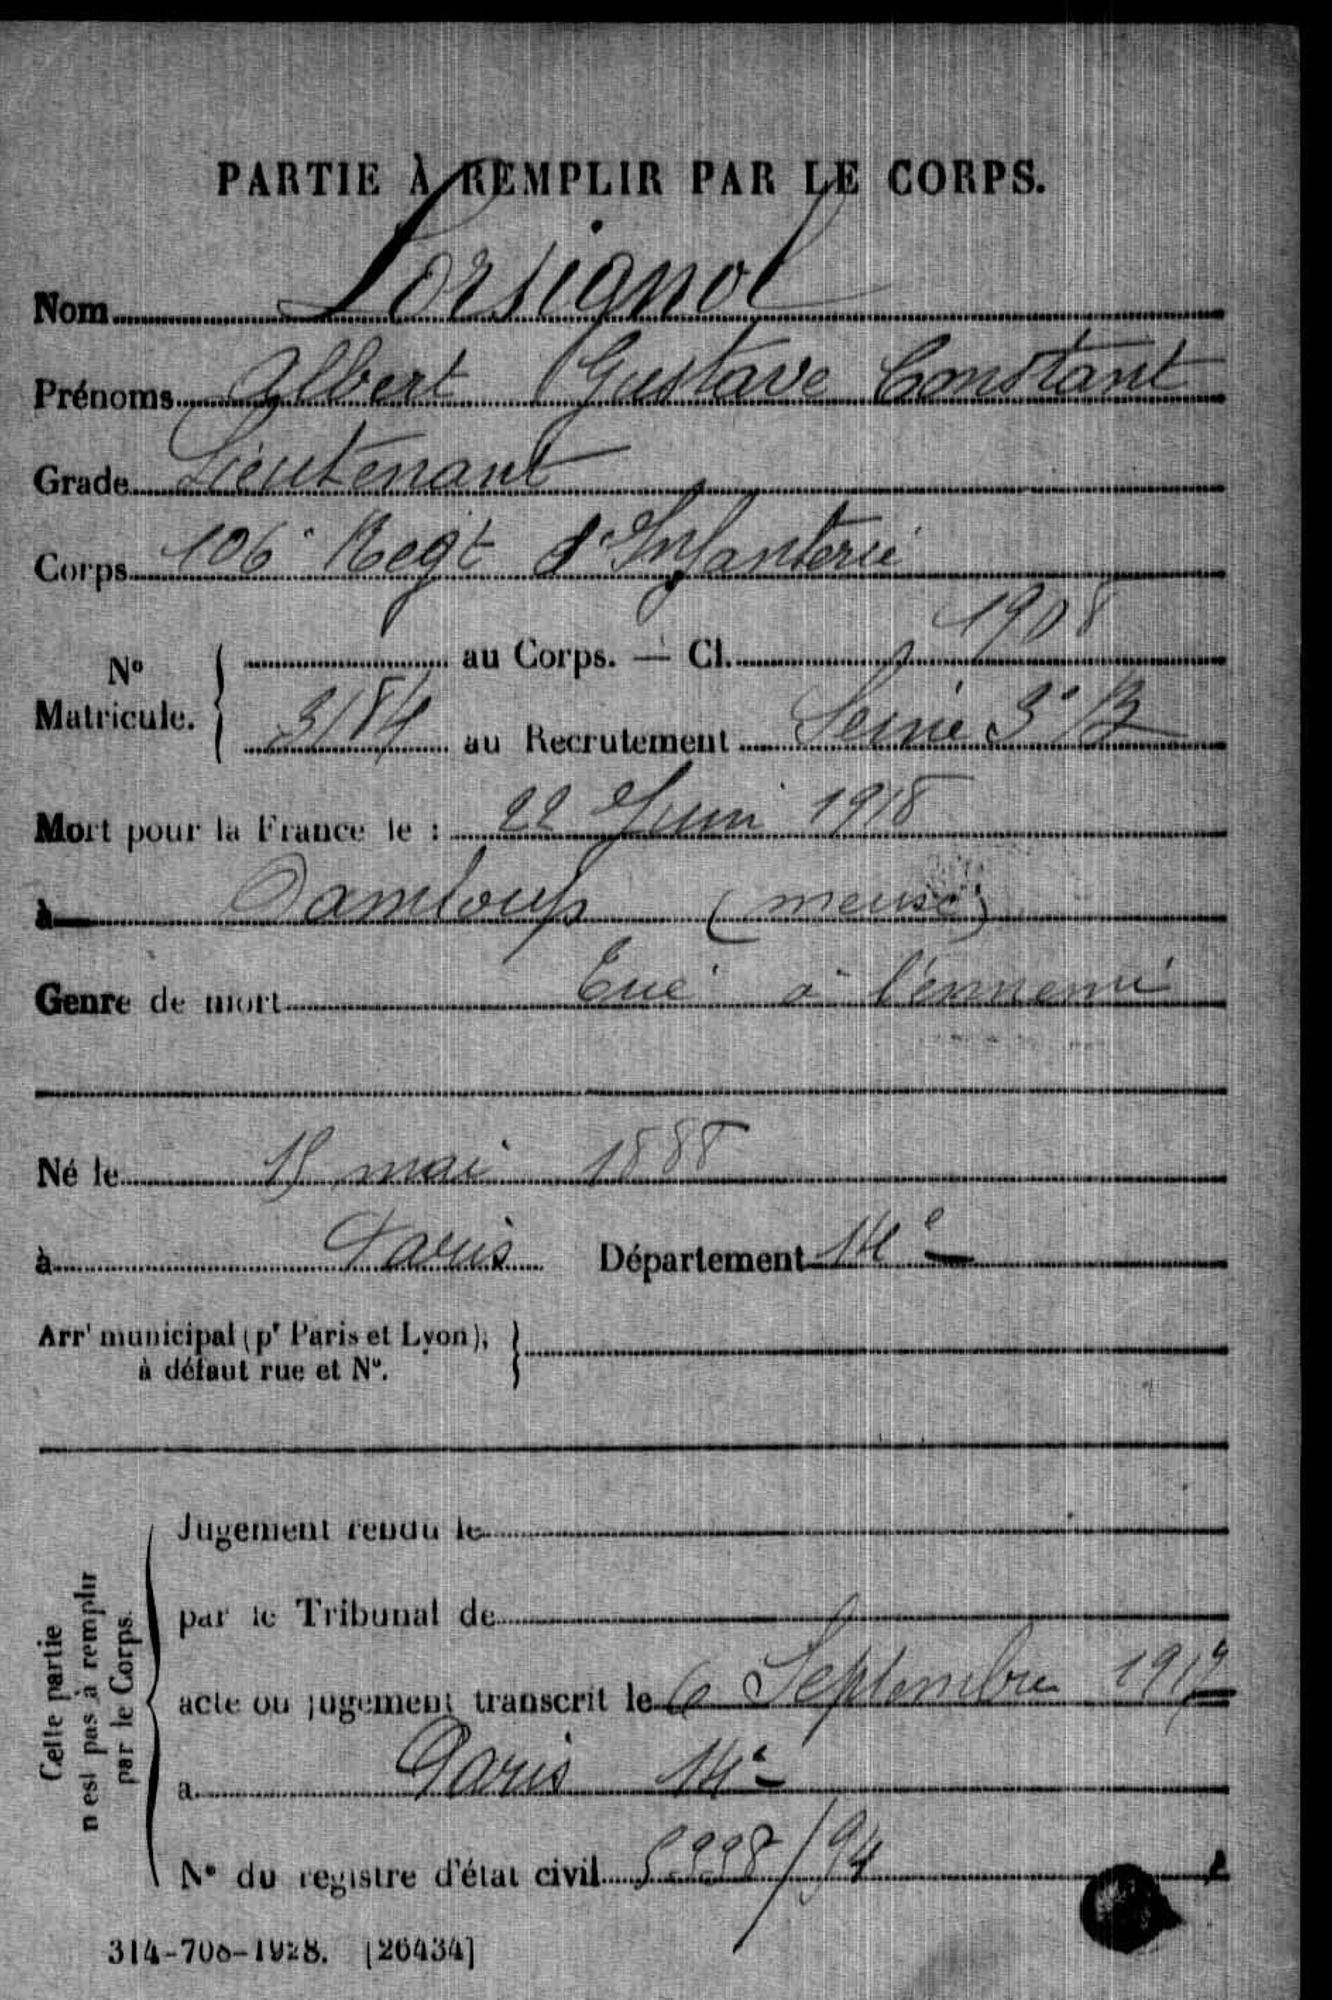 PARTIE À REMPLIR PAR LE CORPS.
Nom Lorsignol
Prénoms Albert Gustave Constant
Grade Lieutenant
Corps 106e Regt d'Infanterie
N° Matricule. { au Corps. — Cl. 1908
3184 au Recrutement Seine 3e B
Mort pour la France le : 22 Juin 1918
à Damloup (meuse)
Genre de mort Tué à l'ennemi
Né le mai 1888
à Paris Département 14e
Arrt municipal (pr Paris et Lyon), }
à défaut rue et N°.
Cette partie
n'est pas à remplir
par le Corps.
Jugement rendu le
par le Tribunal de
acte ou jugement transcrit le 6 Septembre
à Paris 14e
N° du registre d'état civil
314-708-1928. [26434]